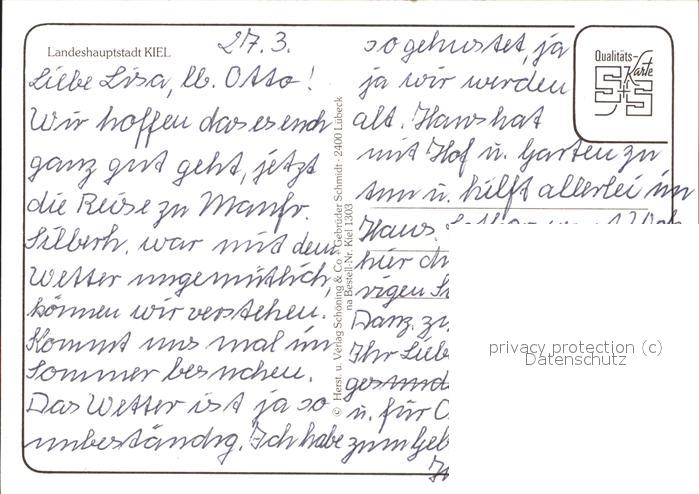 Landeshauptstadt KIEL
27.3.
Liebe Lisa, lb. Otto!
Wir hoffen das es euch
ganz gut geht, jetzt
die Reise zu Manfr.
Silberh. war mit dem
Wetter ungemütlich,
können wir verstehen.
Kommt uns mal im
Sommer besuchen.
Das Wetter ist ja so
unbeständig. Ich habe
so gehustet, ja
ja wir werden
alt. Hans hat
mit Hof u. Garten zu
tun u. hilft allerlei im
Haus.
Danz. zu
Ihr Liebe
gesund
u. für
zum Geb
© Herst. u. Verlag Schöning & Co + Gebrüder Schmidt · 2400 Lübeck
na Bestell-Nr. Kiel 1303
Qualitäts-
Karte
S+S
privacy protection (c)
Datenschutz